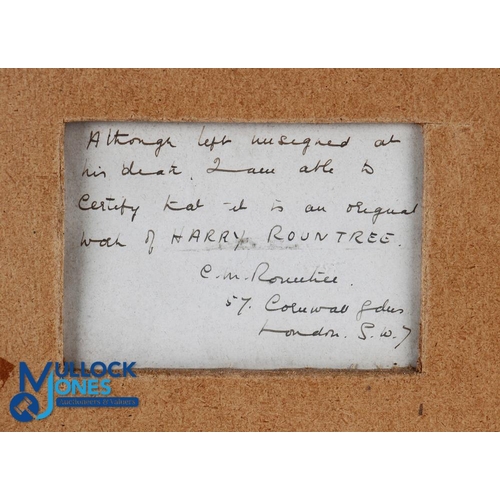 Although left unsigned at
his death, I am able to
Certify that it is an original
work of HARRY ROUNTREE.
C. M. Rountree.
57. Cornwall Gdns
London. S.W.7
MULLOCK
JONES
Auctioneers & Valuers